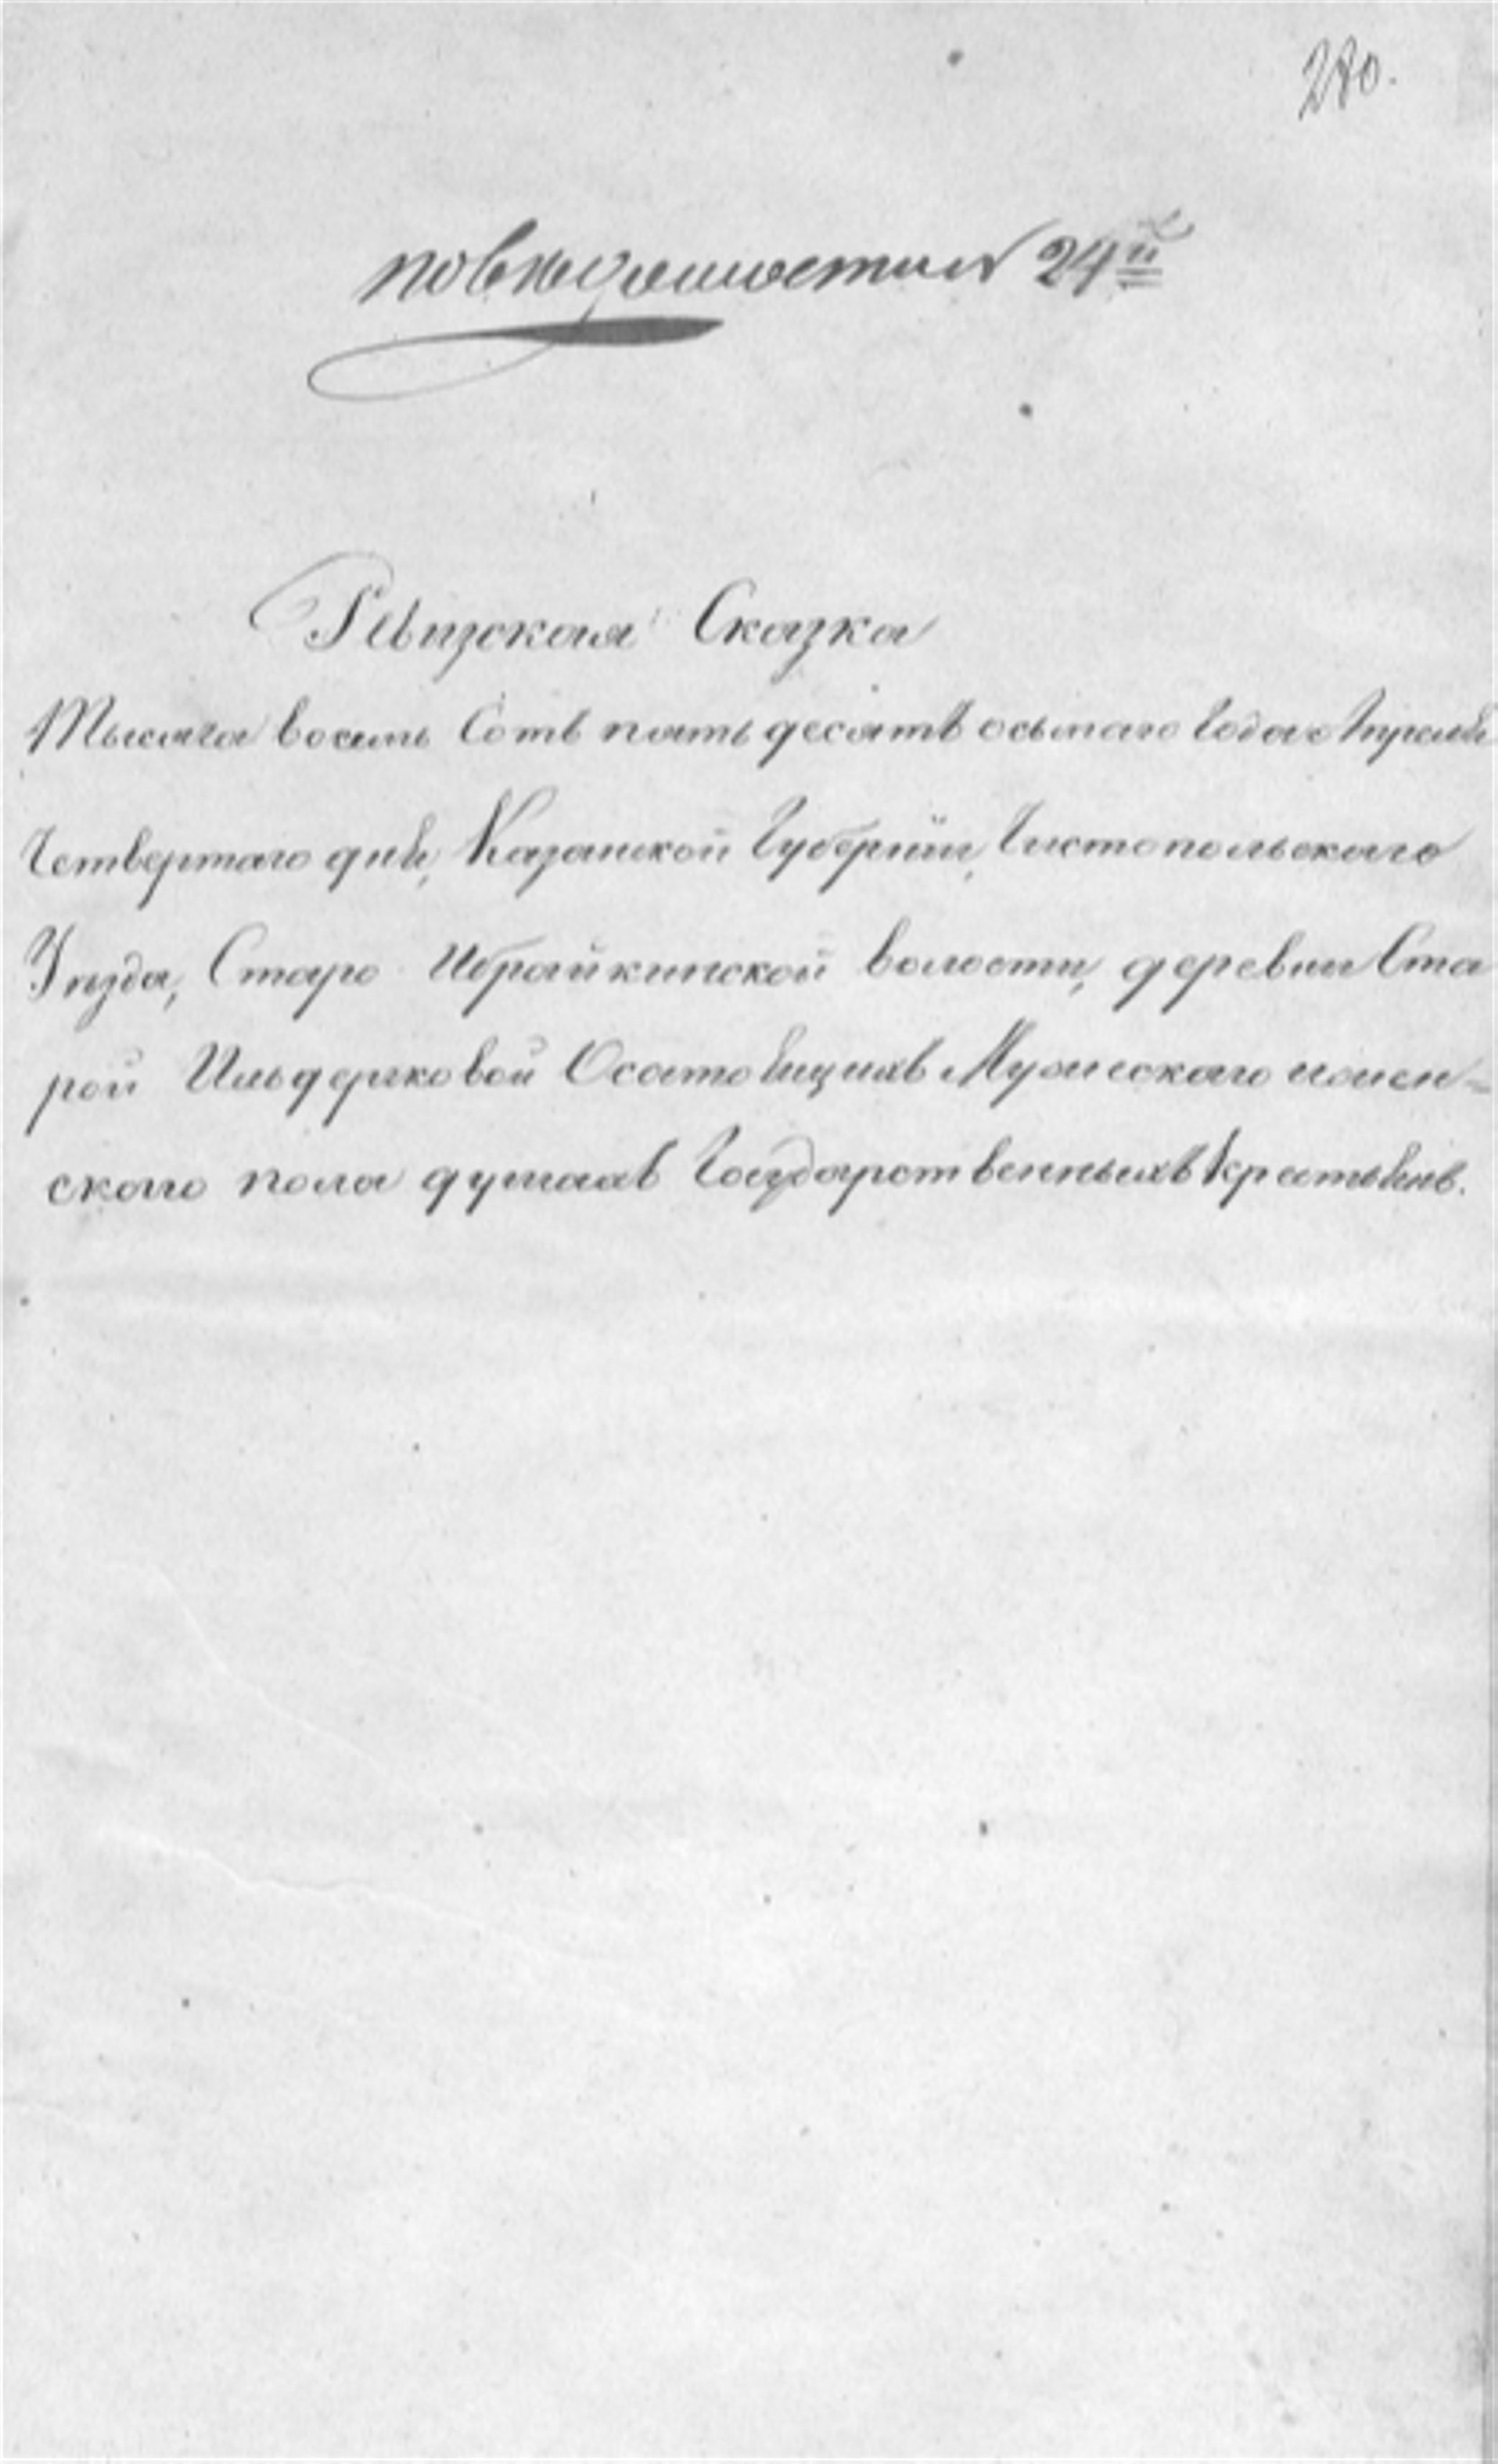 280.
по вкедомостии 24й
Ревизская Сказка
Тысяча восемь Сотъ пять десятъ осьмаго Года Апреля
Четвертаго дня, Казанской Губернiи, Чистопольскаго
Уезда, Старо Ибрайкинской волости, деревни Ста
рой Ильдеряковой О состоящихъ Мужескаго и жен=
скаго пола душахъ Государственныхъ крестьянъ.